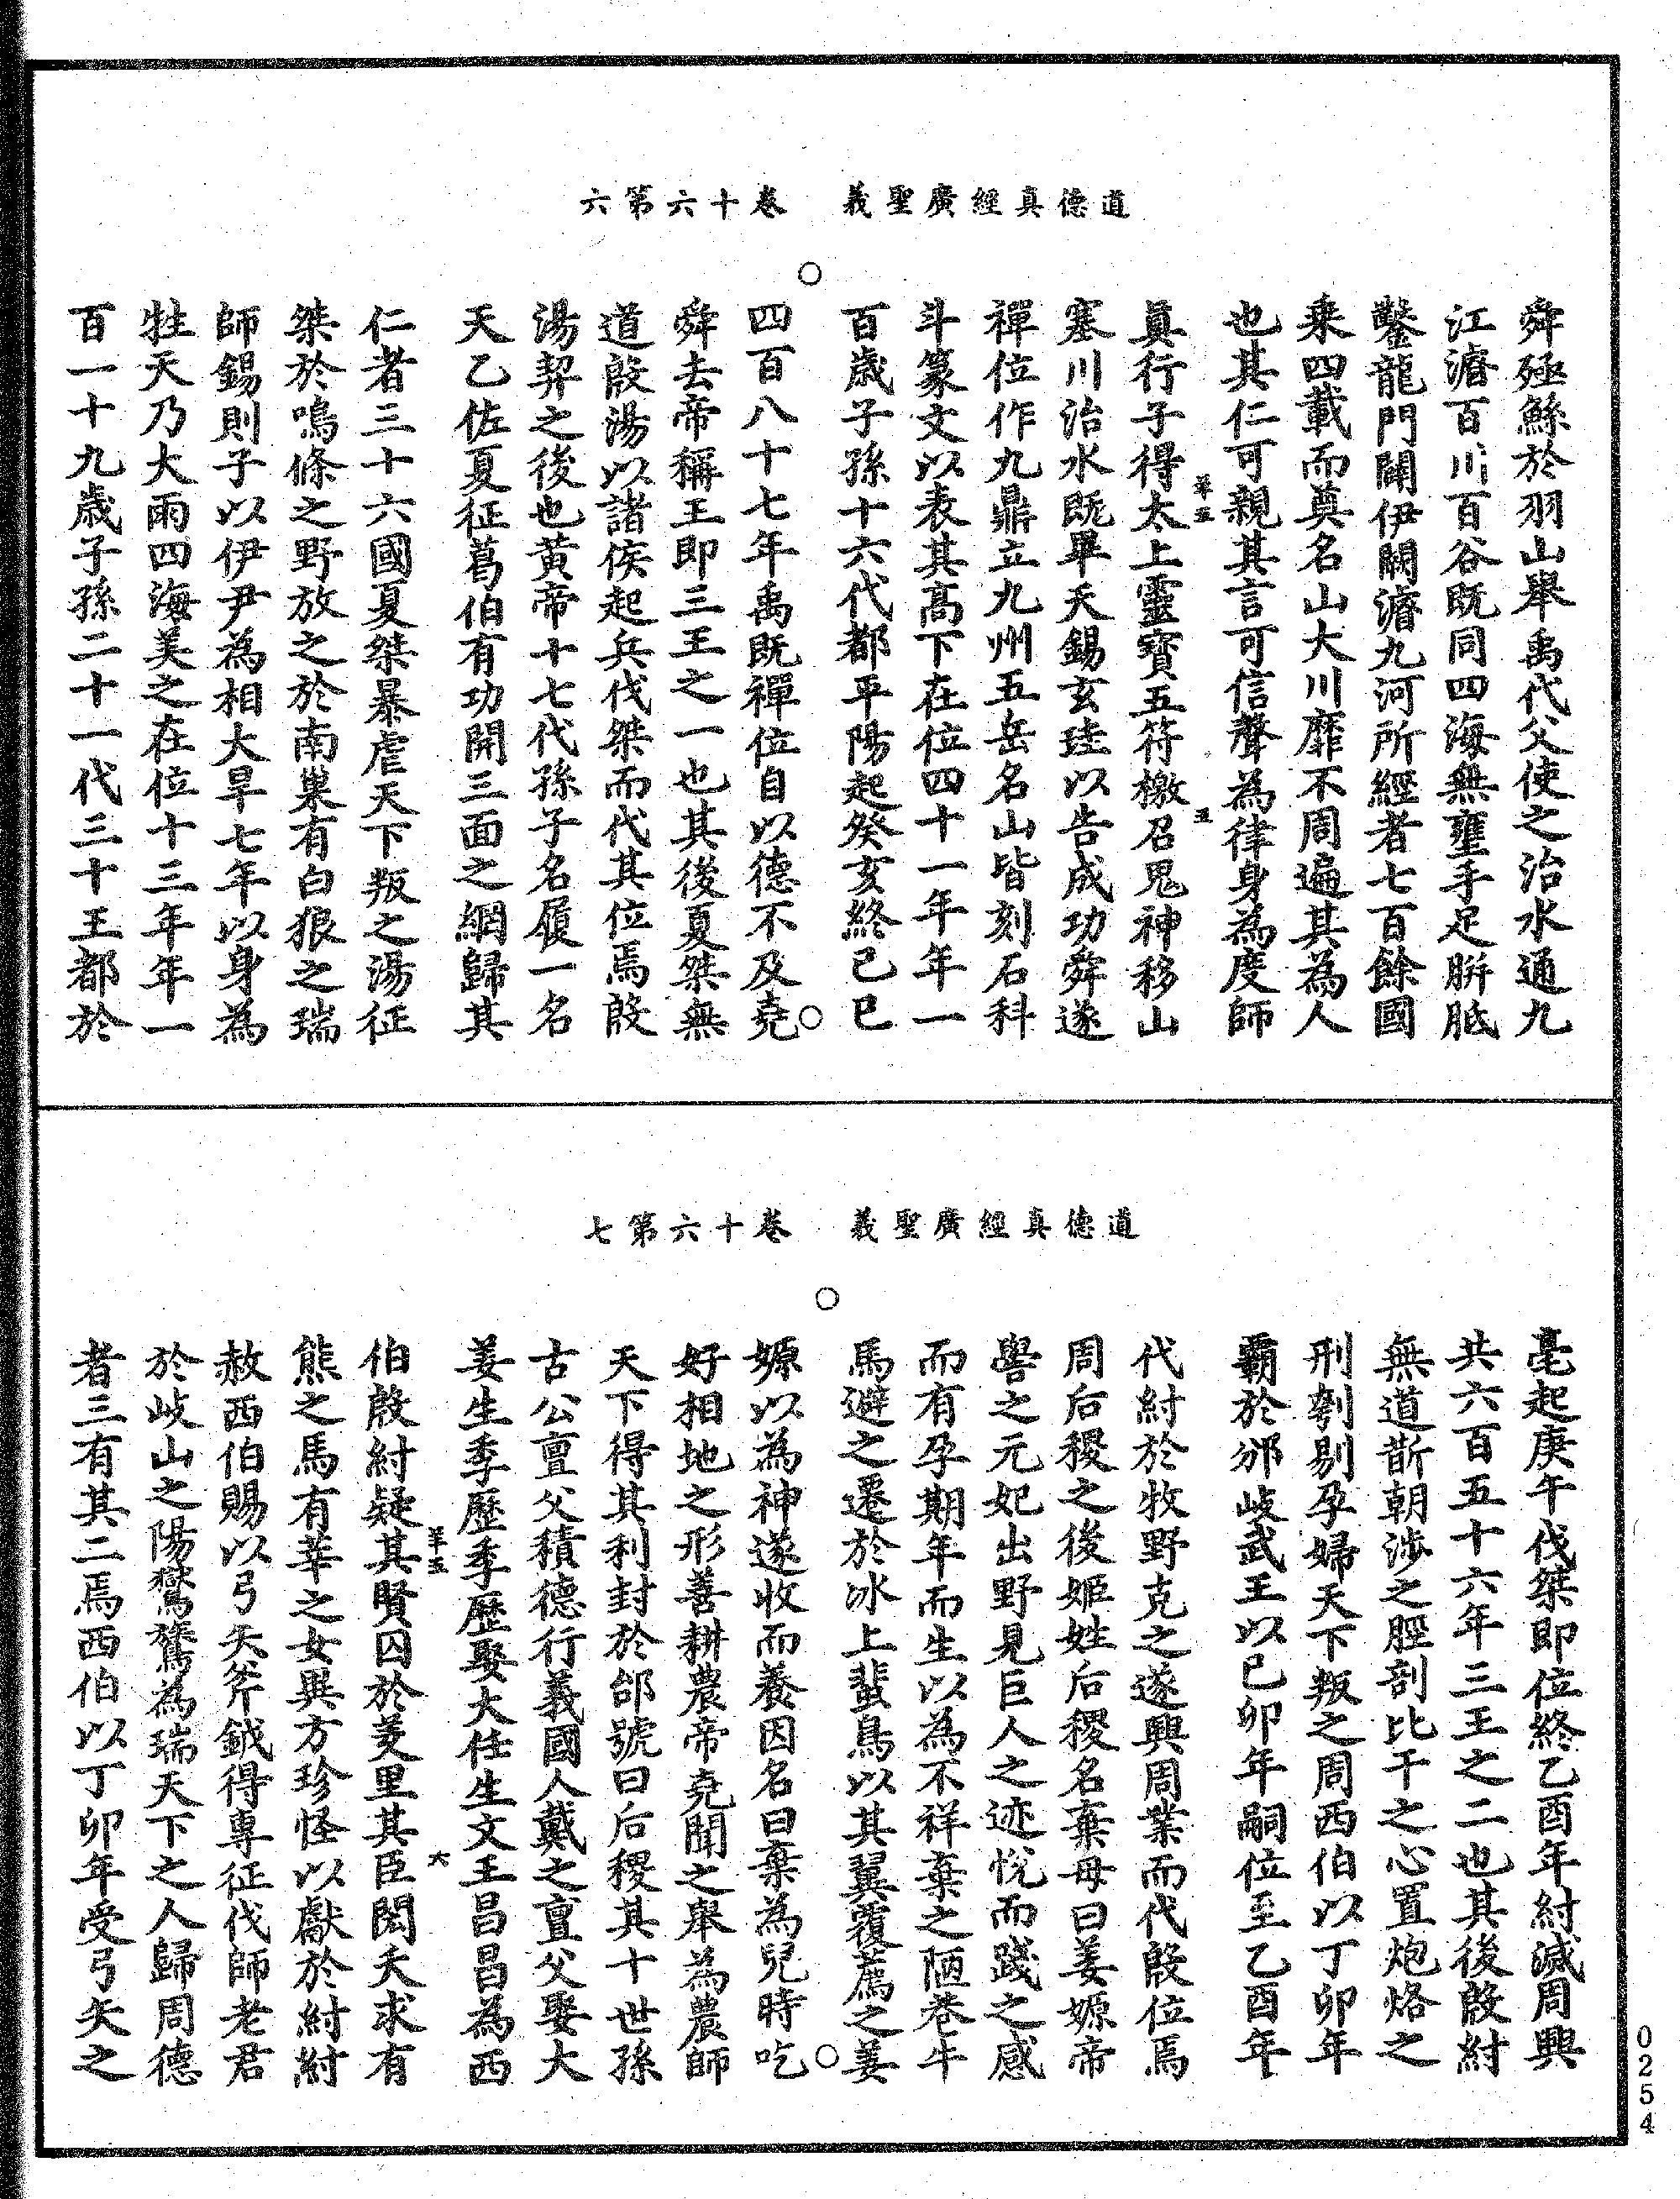 道德真經廣聖義　卷十六第六
舜殛鯀於羽山舉禹代父使之治水通九
江濬百川百谷既同四海無壅手足胼胝
鑿龍門闢伊闕濬九河所經者七百餘國
乗四載而奠名山大川靡不周遍其為人
也其仁可親其言可信聲為律身為度師
羊五　五
真行子得太上靈寳五符檄召鬼神移山
塞川治水既畢天錫玄珪以告成功舜遂
禪位作九鼎立九州五岳名山皆刻石科
斗篆文以表其髙下在位四十一年年一
百歳子孫十六代都平陽起癸亥終己巳
四百八十七年禹既禪位自以德不及堯
舜去帝稱王即三王之一也其後夏桀無
道殷湯以諸侯起兵伐桀而代其位焉殷
湯契之後也黄帝十七代孫子名履一名
天乙佐夏征葛伯有功開三面之網歸其
仁者三十六國夏桀暴虐天下叛之湯征
桀於鳴條之野放之於南巢有白狼之瑞
師錫則子以伊尹為相大旱七年以身為
牲天乃大雨四海美之在位十三年年一
百一十九歳子孫二十一代三十王都於
道德真經廣聖義　卷十六第七
亳起庚午伐桀即位終乙酉年紂滅周興
共六百五十六年三王之二也其後殷紂
無道斮朝涉之脛剖比干之心置炮烙之
刑刳剔孕婦天下叛之周西伯以丁卯年
霸於邠岐武王以己卯年嗣位至乙酉年
代紂於牧野克之遂興周業而代殷位焉
周后稷之後姬姓后稷名棄母曰姜嫄帝
嚳之元妃出野見巨人之迹悅而踐之感
而有孕期年而生以為不祥棄之陋巷牛
馬避之遷於冰上蜚鳥以其翼覆薦之姜
嫄以為神遂收而養因名曰棄為兒時吃
好相地之形善耕農帝堯聞之舉為農師
天下得其利封於邰號曰后稷其十世孫
古公亶父積德行義國人戴之亶父娶大
姜生季歷季歷娶大任生文王昌昌為西
羊五　六
伯殷紂疑其賢囚於羑里其臣閎夭求有
熊之馬有莘之女異方珍怪以獻於紂紂
赦西伯賜以弓矢斧鉞得專征伐師老君
於岐山之陽鸑鷟為瑞天下之人歸周德
者三有其二焉西伯以丁卯年受弓矢之
0254